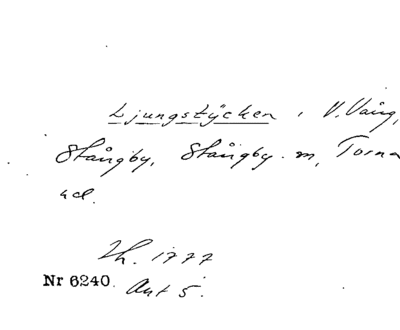 Ljungstycken, V. Vång,
Stångby, Stångby. m, Torna
hd.
Lh. 1777
Nr 6240. Akt 5.